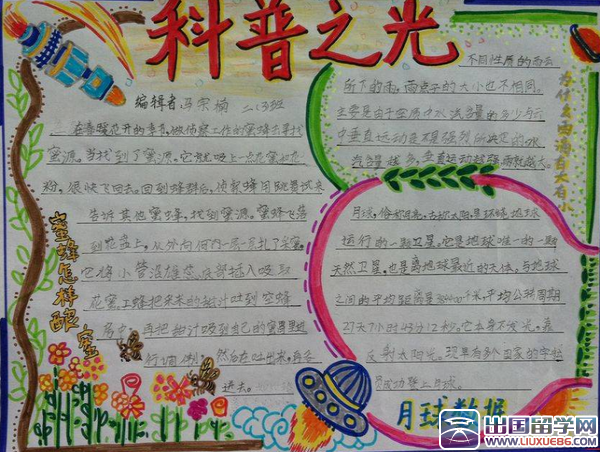 科普之光
编辑者 马宗楠 二、(3)班
蜜蜂怎样酿蜜
在春暖花开的季节,做侦察工作的蜜蜂去寻找
蜜源。当找到了蜜源,它就吸上一点花蜜和花
粉,很快飞回去。回到蜂群后,侦察蜂用跳舞试来
告诉其他蜜蜂,找到蜜源。蜜蜂飞落
到花盘上,从外向
它将小管
花蜜。
再把
然后在吐出来,
进去。
为什么雨滴有大有小
不同性质的雨云
所下的雨,雨点子的大小也不相同。
主要是由于空质中水汽含量的多少与云
中垂直运动是不是强烈所决定的。水
汽含量越多,垂直运动越强,雨就越大。
月球数据
月球,俗称月亮,古称太阴,是环绕地球
运行的一颗卫星。它是地球唯一的一颗
天然卫星,也是离地球最近的天体。与地球
之间的平均距离是384400千米,平均公转周期
27天7小时43分12秒。它本身不发光,靠
反射太阳光。现早有多个国家的宇航
员成功登上月球。
出国留学网
www.liuxue86.com